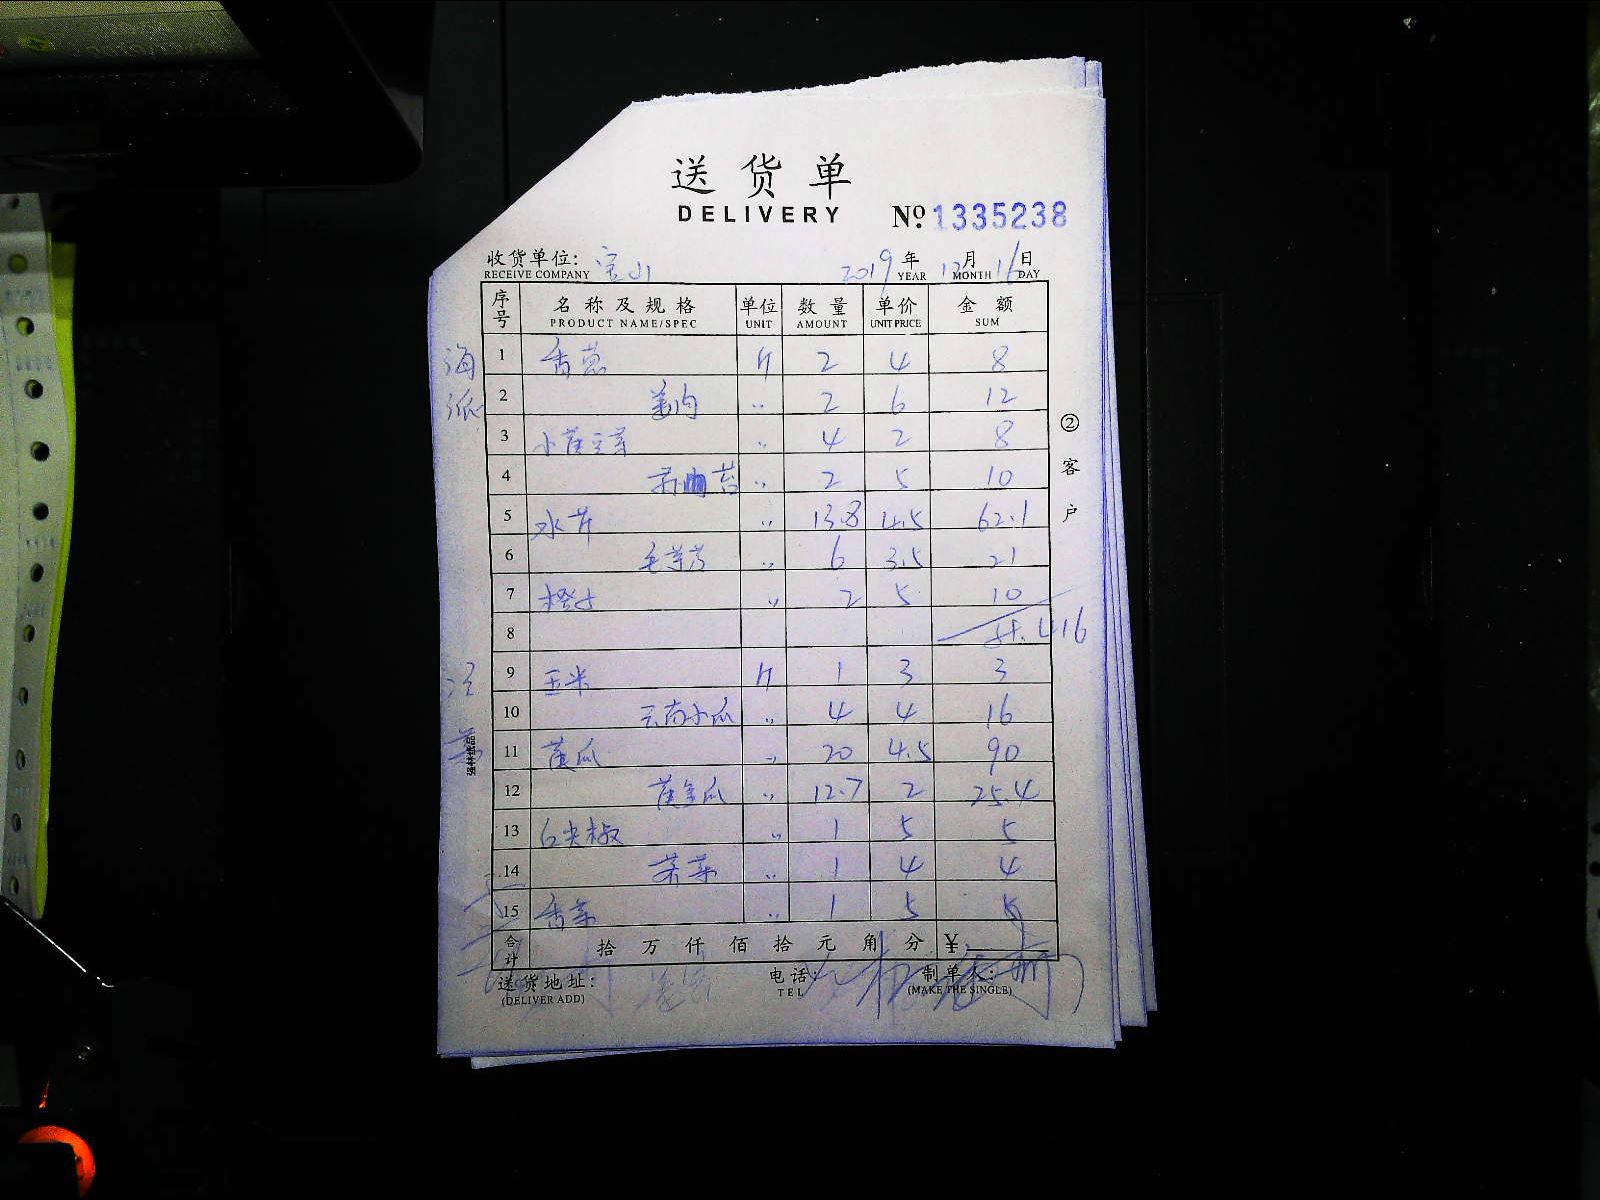 送货单
DELIVERY
№ 1335238
收货单位: 宝山 2019年 12月 16日
RECEIVE COMPANY YEAR MONTH DAY
序号 名称及规格 单位 数量 单价 金额
PRODUCT NAME/SPEC UNIT AMOUNT UNIT PRICE SUM
1 香葱 斤 2 4 8
2 姜肉 〃 2 6 12
3 小黄豆芽 〃 4 2 8
4 〃 2 5 10
5 水芹 〃 13.8 4.5 62.1
6 毛芋艿 〃 6 3.5 21
7 橙子 〃 2 5 10
8 416
9 玉米 斤 1 3 3
10 云南小瓜 〃 4 4 16
11 黄瓜 〃 20 4.5 90
12 黄金瓜 〃 12.7 2 25.4
13 白尖椒 〃 1 5 5
14 〃 1 4 4
15 香菜 〃 1 5 5
合计 拾 万 仟 佰 拾 元 角 分 ¥
送货地址: 电话: 制单人:
(DELIVER ADD) TEL (MAKE THE SINGLE)
②客户
海派
强林纸品